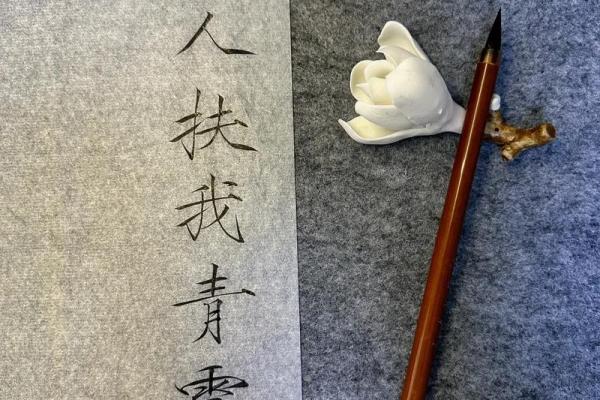 人扶我青雲